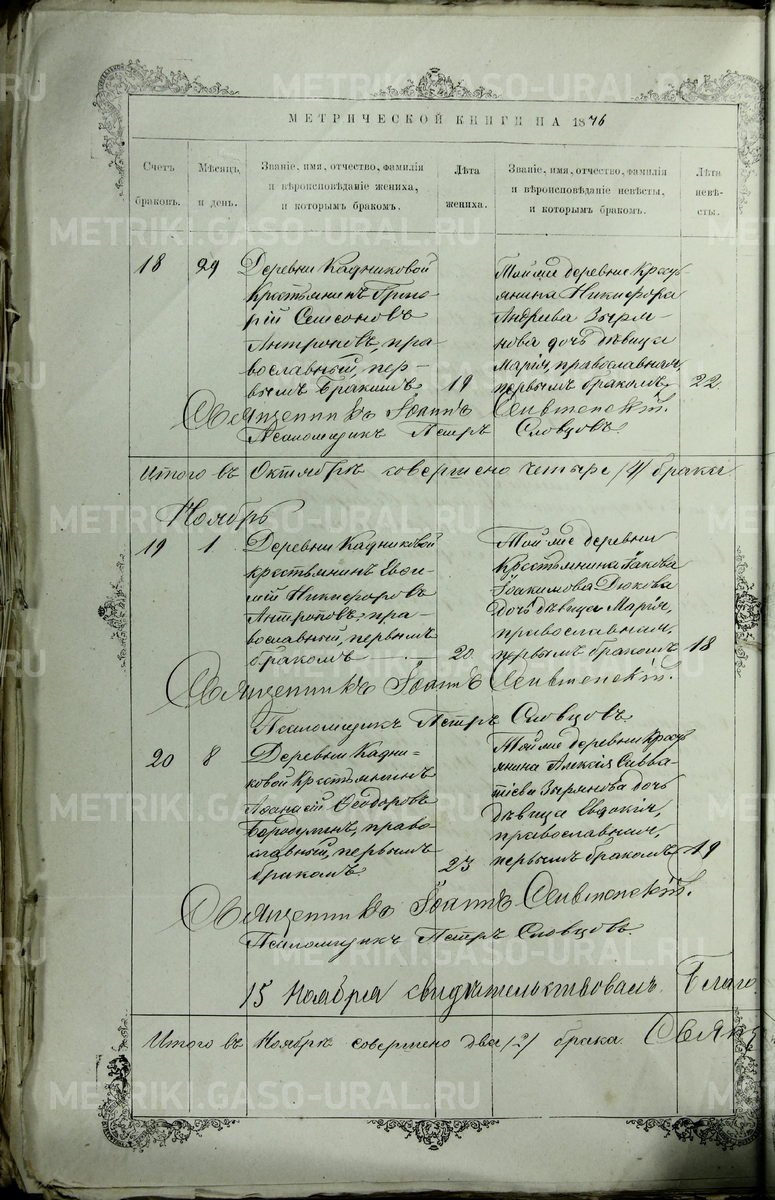 МЕТРИЧЕСКОЙ КНИГИ НА 1876
Счетъ браковъ.
Мѣсяцъ и день.
Званіе, имя, отчество, фамилія
и вѣроисповѣданіе жениха,
и которымъ бракомъ.
Лѣта жениха.
Званіе, имя, отчество, фамилія
и вѣроисповѣданіе невѣсты,
и которымъ бракомъ.
Лѣта невѣ-
сты.
18
29
Деревни Кадниковой
крестьянинъ Григо-
рій Самсоновъ
Антроповъ, пра-
вославный, пер-
вымъ бракомъ
19
Той же деревни кресть
янина Никифора
Андреева Зыря-
нова дочь дѣвица
Марія, православная,
первымъ бракомъ
22
Священникъ Іоаннъ
Псаломщикъ Петръ Словцовъ
Итого въ Октябрѣ совершено четыре /4/ брака
Ноябрь
19
1
Деревни Кадниковой
крестьянинъ Евѳи-
мій Никифоровъ
Антроповъ, пра-
вославный, первымъ
бракомъ
20
Той же деревни
крестьянина Іакова
Іоакимова Дюкова
дочь дѣвица Марія,
православная,
первымъ бракомъ
18
Священникъ Іоаннъ
Псаломщикъ Петръ Словцовъ
20
8
Деревни Кадни-
ковой крестьянинъ
Аѳанасій Ѳеодоровъ
православный, первымъ
бракомъ
23
Той же деревни кресть
янина Алексія Савва-
тіева Зырянова дочь
дѣвица Евдокія,
православная,
первымъ бракомъ
19
Священникъ Іоаннъ
Псаломщикъ Петръ Словцовъ
15 Ноября свидѣтельствовалъ Благо.
Итого въ Ноябрѣ совершено два /2/ брака. Свящ
METRIKI.GASO-URAL.RU